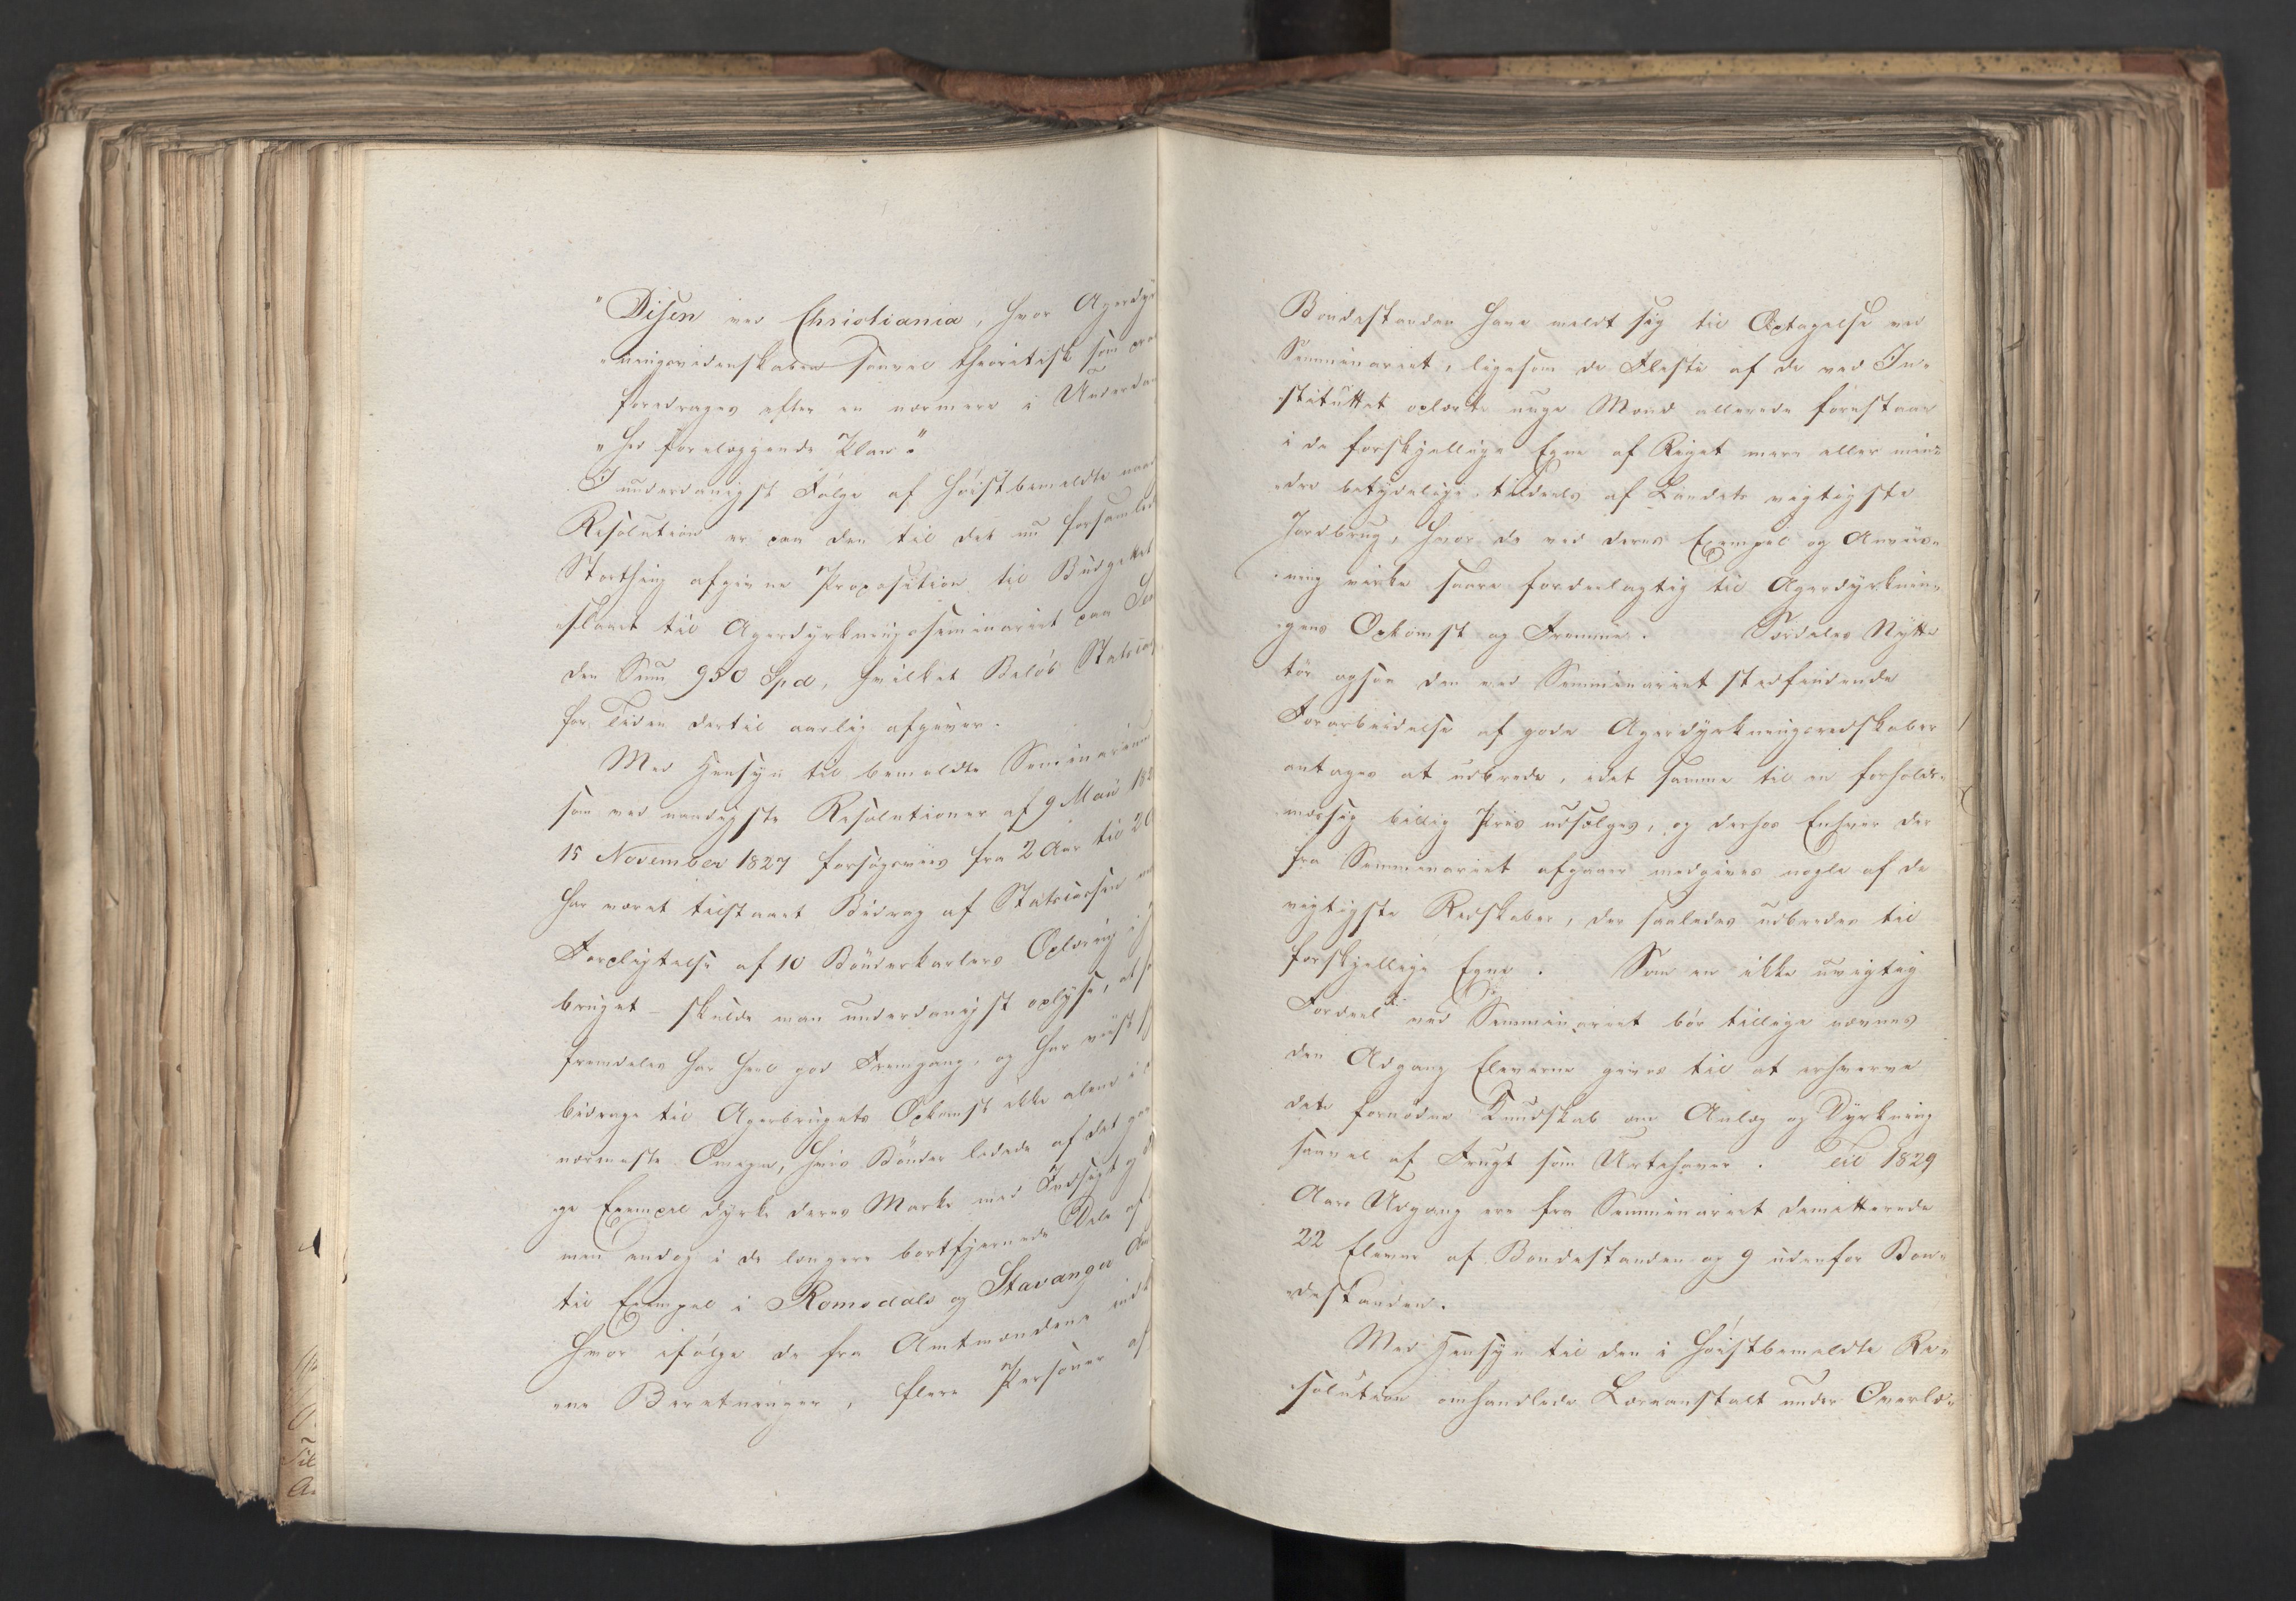 "Disen ved Christiania, hvor Agerdyr
"ningsvidenskaben saavel theoretisk som prac
foredrages efter en nærmere i Underdan
"hed forelæggende Plan".
I underdanigst Følge af høistbemeldte naad
Resolution er paa den til det nu forsamlede
Storthing afgivne Proposition til Budgettet
opført til Agerdyrkningsseminariet paa
den Sum 950 Spd, hvilket Beløb Statscas
for Tiden dertil aarlig afgiver.
Med Hensyn til bemeldte Seminarium
som ved naadigste Resolutioner af 9 Mai 182
15 November 1827 forsøgsviis fra 2 Aar til
har været tilstaaet Bidrag af Statscassen
Forpligtelse af 10 Bønderkarlers Oplæring i
bruget – skulde man underdanigst oplyse, at
fremdeles har havt god Fremgang, og har viist
bidrage til Agerbrugets Opkomst ikke alene i
nærmeste Omegn, hvis Bønder ledede af det go
ge Exempel dyrke deres Marke med Indsigt og
men endog i de længere bortfjernede Dele af
til Exempel i Romsdals og Stavanger Am
hvor ifølge de fra Amtmændene ind
ne Beretninger, flere Personer af
Bondestanden have meldt sig til Optagelse ved
Semminariet, ligesom de Fleste af de ved In-
stituttet oplærte unge Mænd allerede forestaar
i de forskjellige Egne af Riget mere eller min-
dre betydelige, tildeels af Landets vigtigste
Jordbrug, hvor de ved deres Exempel og Anviis-
ning virke saare fordeelagtig til Agerdyrknin-
gens Opkomst og Fremme. Særdeles Nytte
tør ogsaa den ved Semminariet stedfindende
Forarbeidelse af gode Agerdyrkningsredskaber
antages at udbrede, idet samme til en forholds-
mæssig billig Priis udsælges, og derhos Enhver der
fra Semminariet afgaaer medgives nogle af de
vigtigste Redskaber, der saaledes udbredes til
forskjellige Egne. Som en ikke uvigtig
Fordeel ved Semminariet bør tillige nævnes
den Adgang Eleverne gives til at erhverve
dets fornødne Kundskab om Anlæg og Dyrkning
saavel af Frugt som Urtehaver. Til 1829
Aars Udgang ere fra Semminariet demitterede
22 Elever af Bondestanden og 9 udenfor Bon-
destanden.
Med Hensyn til den i høistbemeldte Re-
solution omhandlede Læreanstalt under Overlæ-